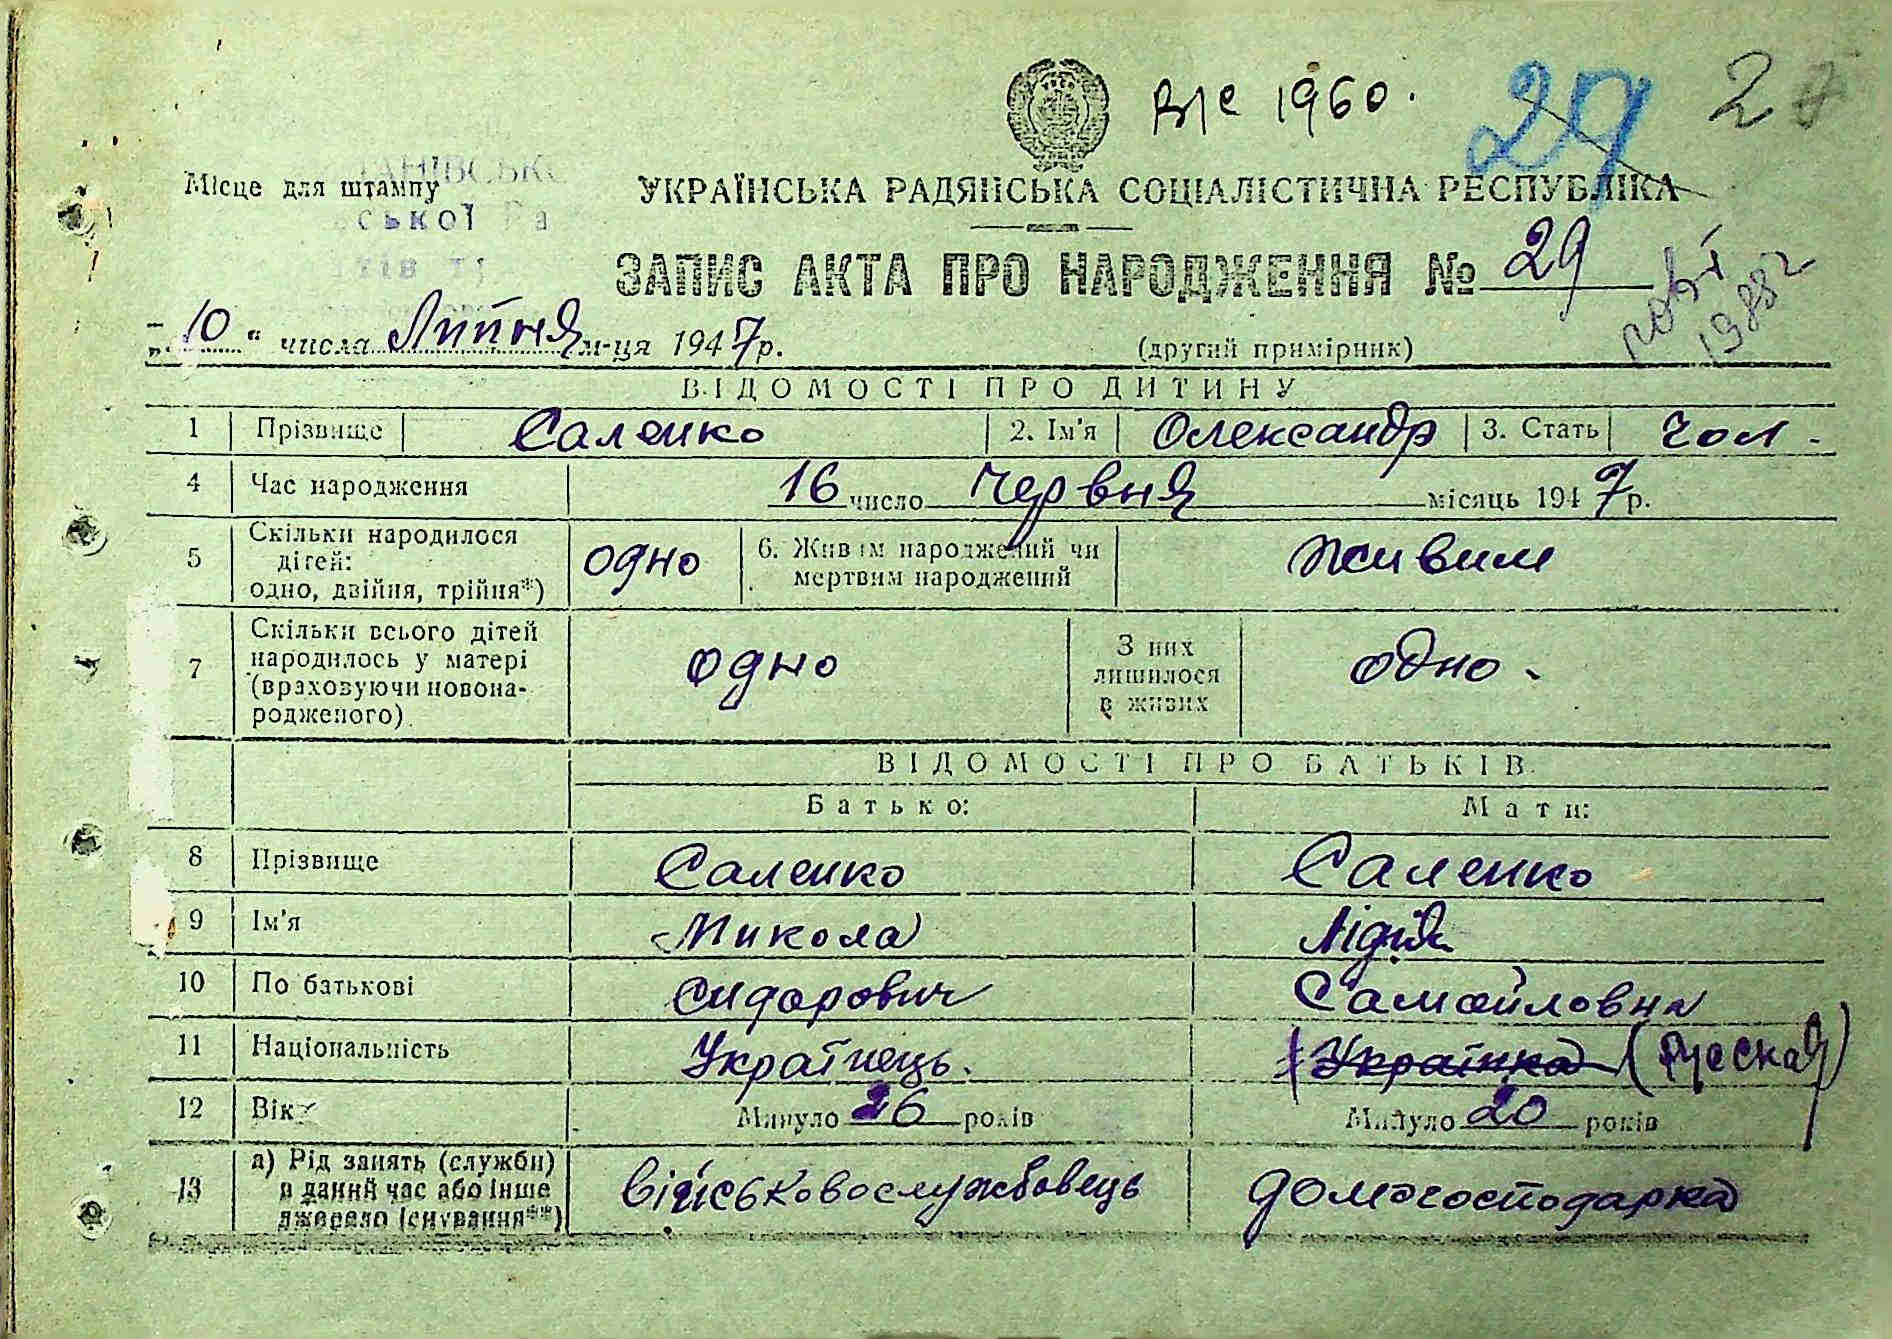 В/с 1960.
29
2
Місце для штампу
УКРАЇНСЬКА РАДЯНСЬКА СОЦІАЛІСТИЧНА РЕСПУБЛІКА
ської Ра
ЗАПИС АКТА ПРО НАРОДЖЕННЯ № 29
„10“ числа Липня м-ця 1947 р.
(другий примірник)
1988
ВІДОМОСТІ ПРО ДИТИНУ
1 Прізвище Саленко 2. Ім'я Олександр 3. Стать чол.
4 Час народження 16 число Червня місяць 1947 р.
5 Скільки народилося дітей: одно, двійня, трійня*) одно 6. Живим народжений чи мертвим народжений Живим
7 Скільки всього дітей народилось у матері (враховуючи новонародженого) одно З них лишилося в живих одно.
ВІДОМОСТІ ПРО БАТЬКІВ
Батько: Мати:
8 Прізвище Саленко Саленко
9 Ім'я Микола Лідія
10 По батькові Сидорович Самойловна
11 Національність Українець. Українка (Русская)
12 Вік Минуло 26 років Минуло 20 років
13 а) Рід занять (служби) в даний час або інше джерело існування**) військовослужбовець домогосподарка